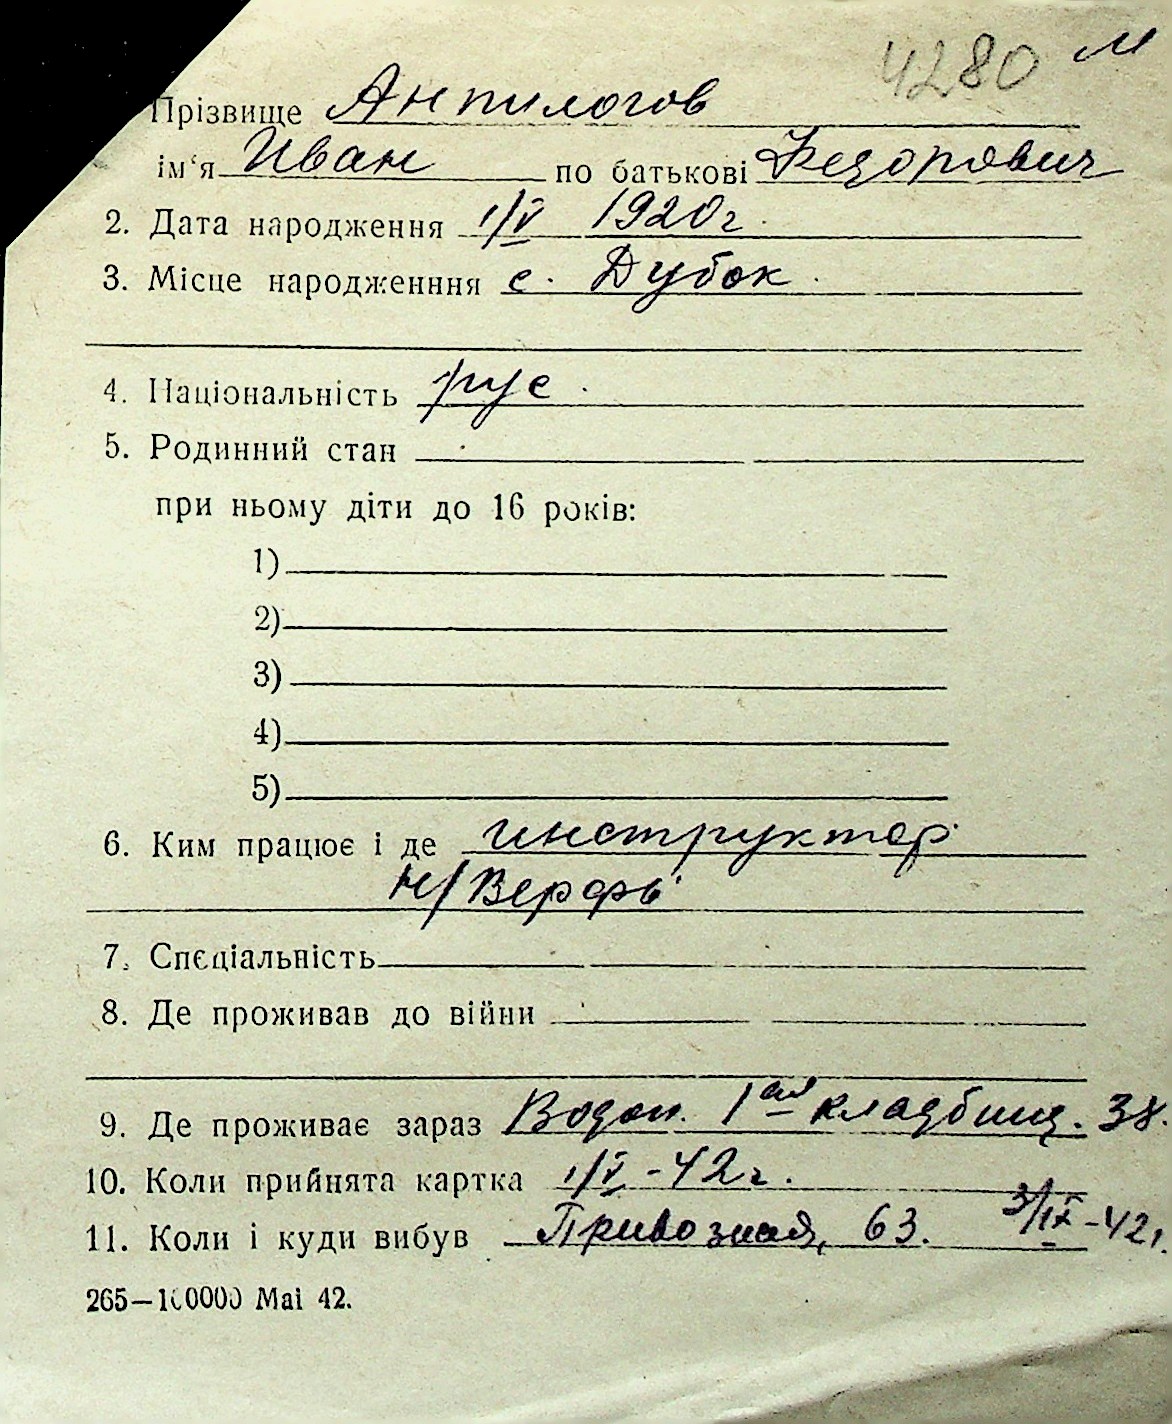 4280 м
Прізвище Анпилогов
ім'я Иван по батькові Федорович
2. Дата народження 1/V 1920г.
3. Місце народженння с. Дубок
4. Національність рус.
5. Родинний стан
при ньому діти до 16 років:
1)
2)
3)
4)
5)
6. Ким працює і де инструктор
н/Верфь
7. Спеціальність
8. Де проживав до війни
9. Де проживає зараз Водоп. 1ая кладбищ. 38.
10. Коли прийнята картка 1/V-42г.
11. Коли і куди вибув Привозная, 63. 3/IX-42г.
265—100000 Mai 42.